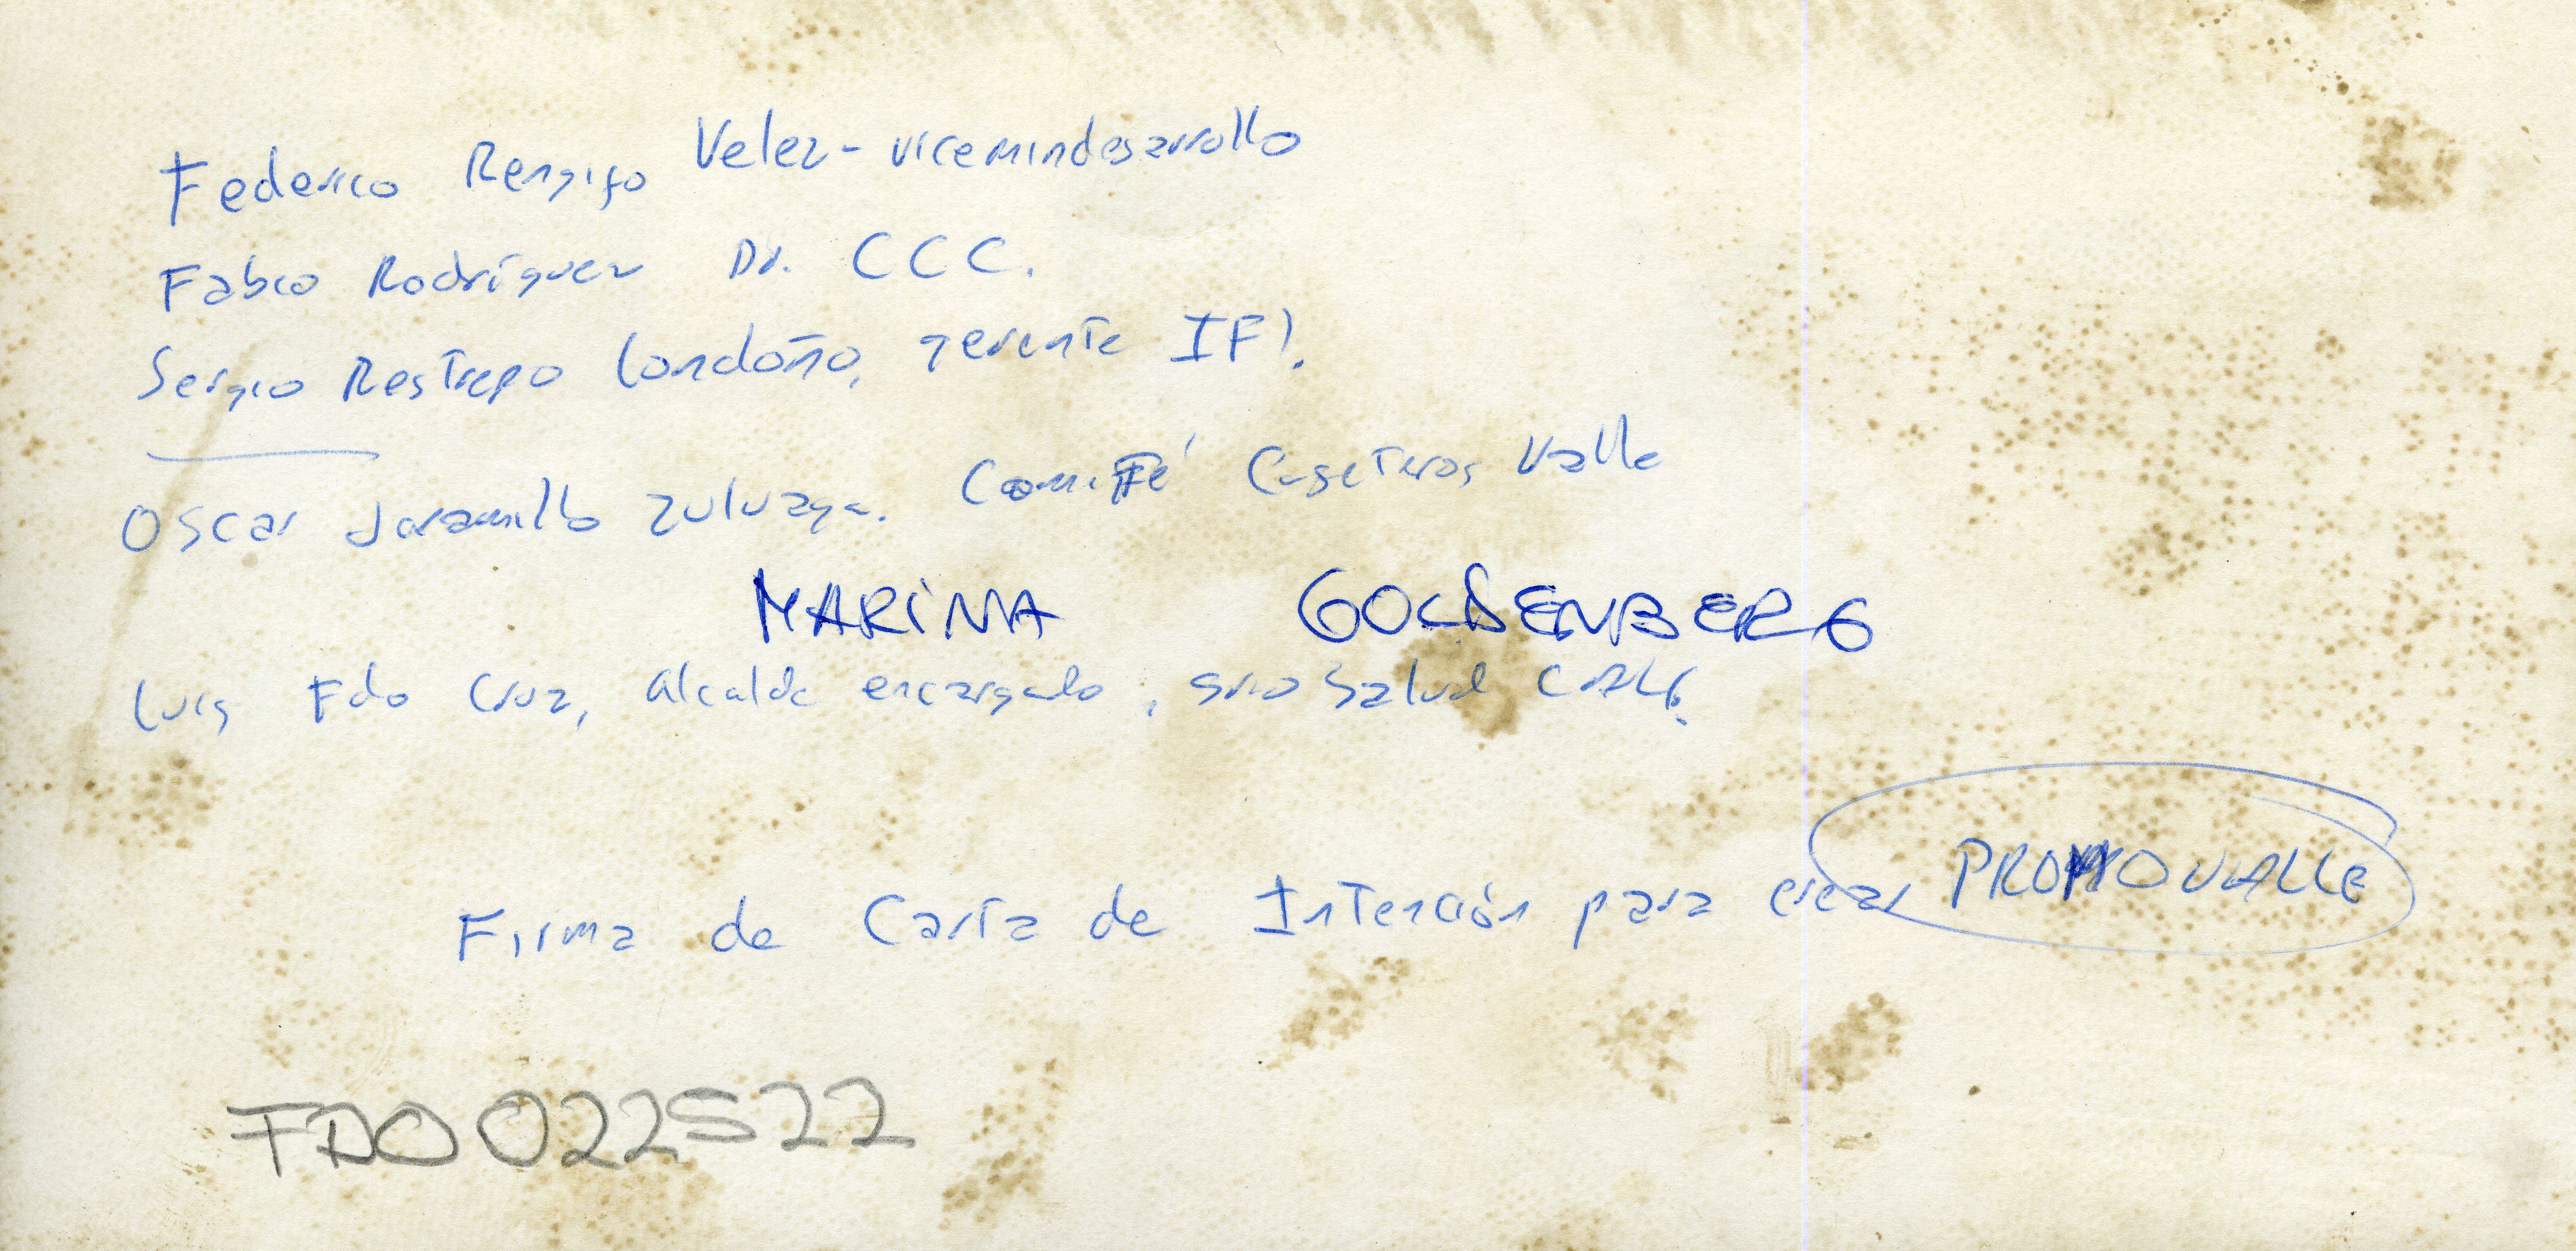 Federico Rengifo Velez - vicemindesarrollo
Fabio Rodríguez Dr. CCC.
Sergio Restrepo Londoño, gerente IFI.
Oscar Jaramillo Zuluaga. Comité Cafeteros Valle
MARiNA GOLDENBERG
Luis Fdo Cruz, alcalde encargado, srio Salud CALI.
Firma de Carta de Intención para crear PROMOVALLE
FAO022522